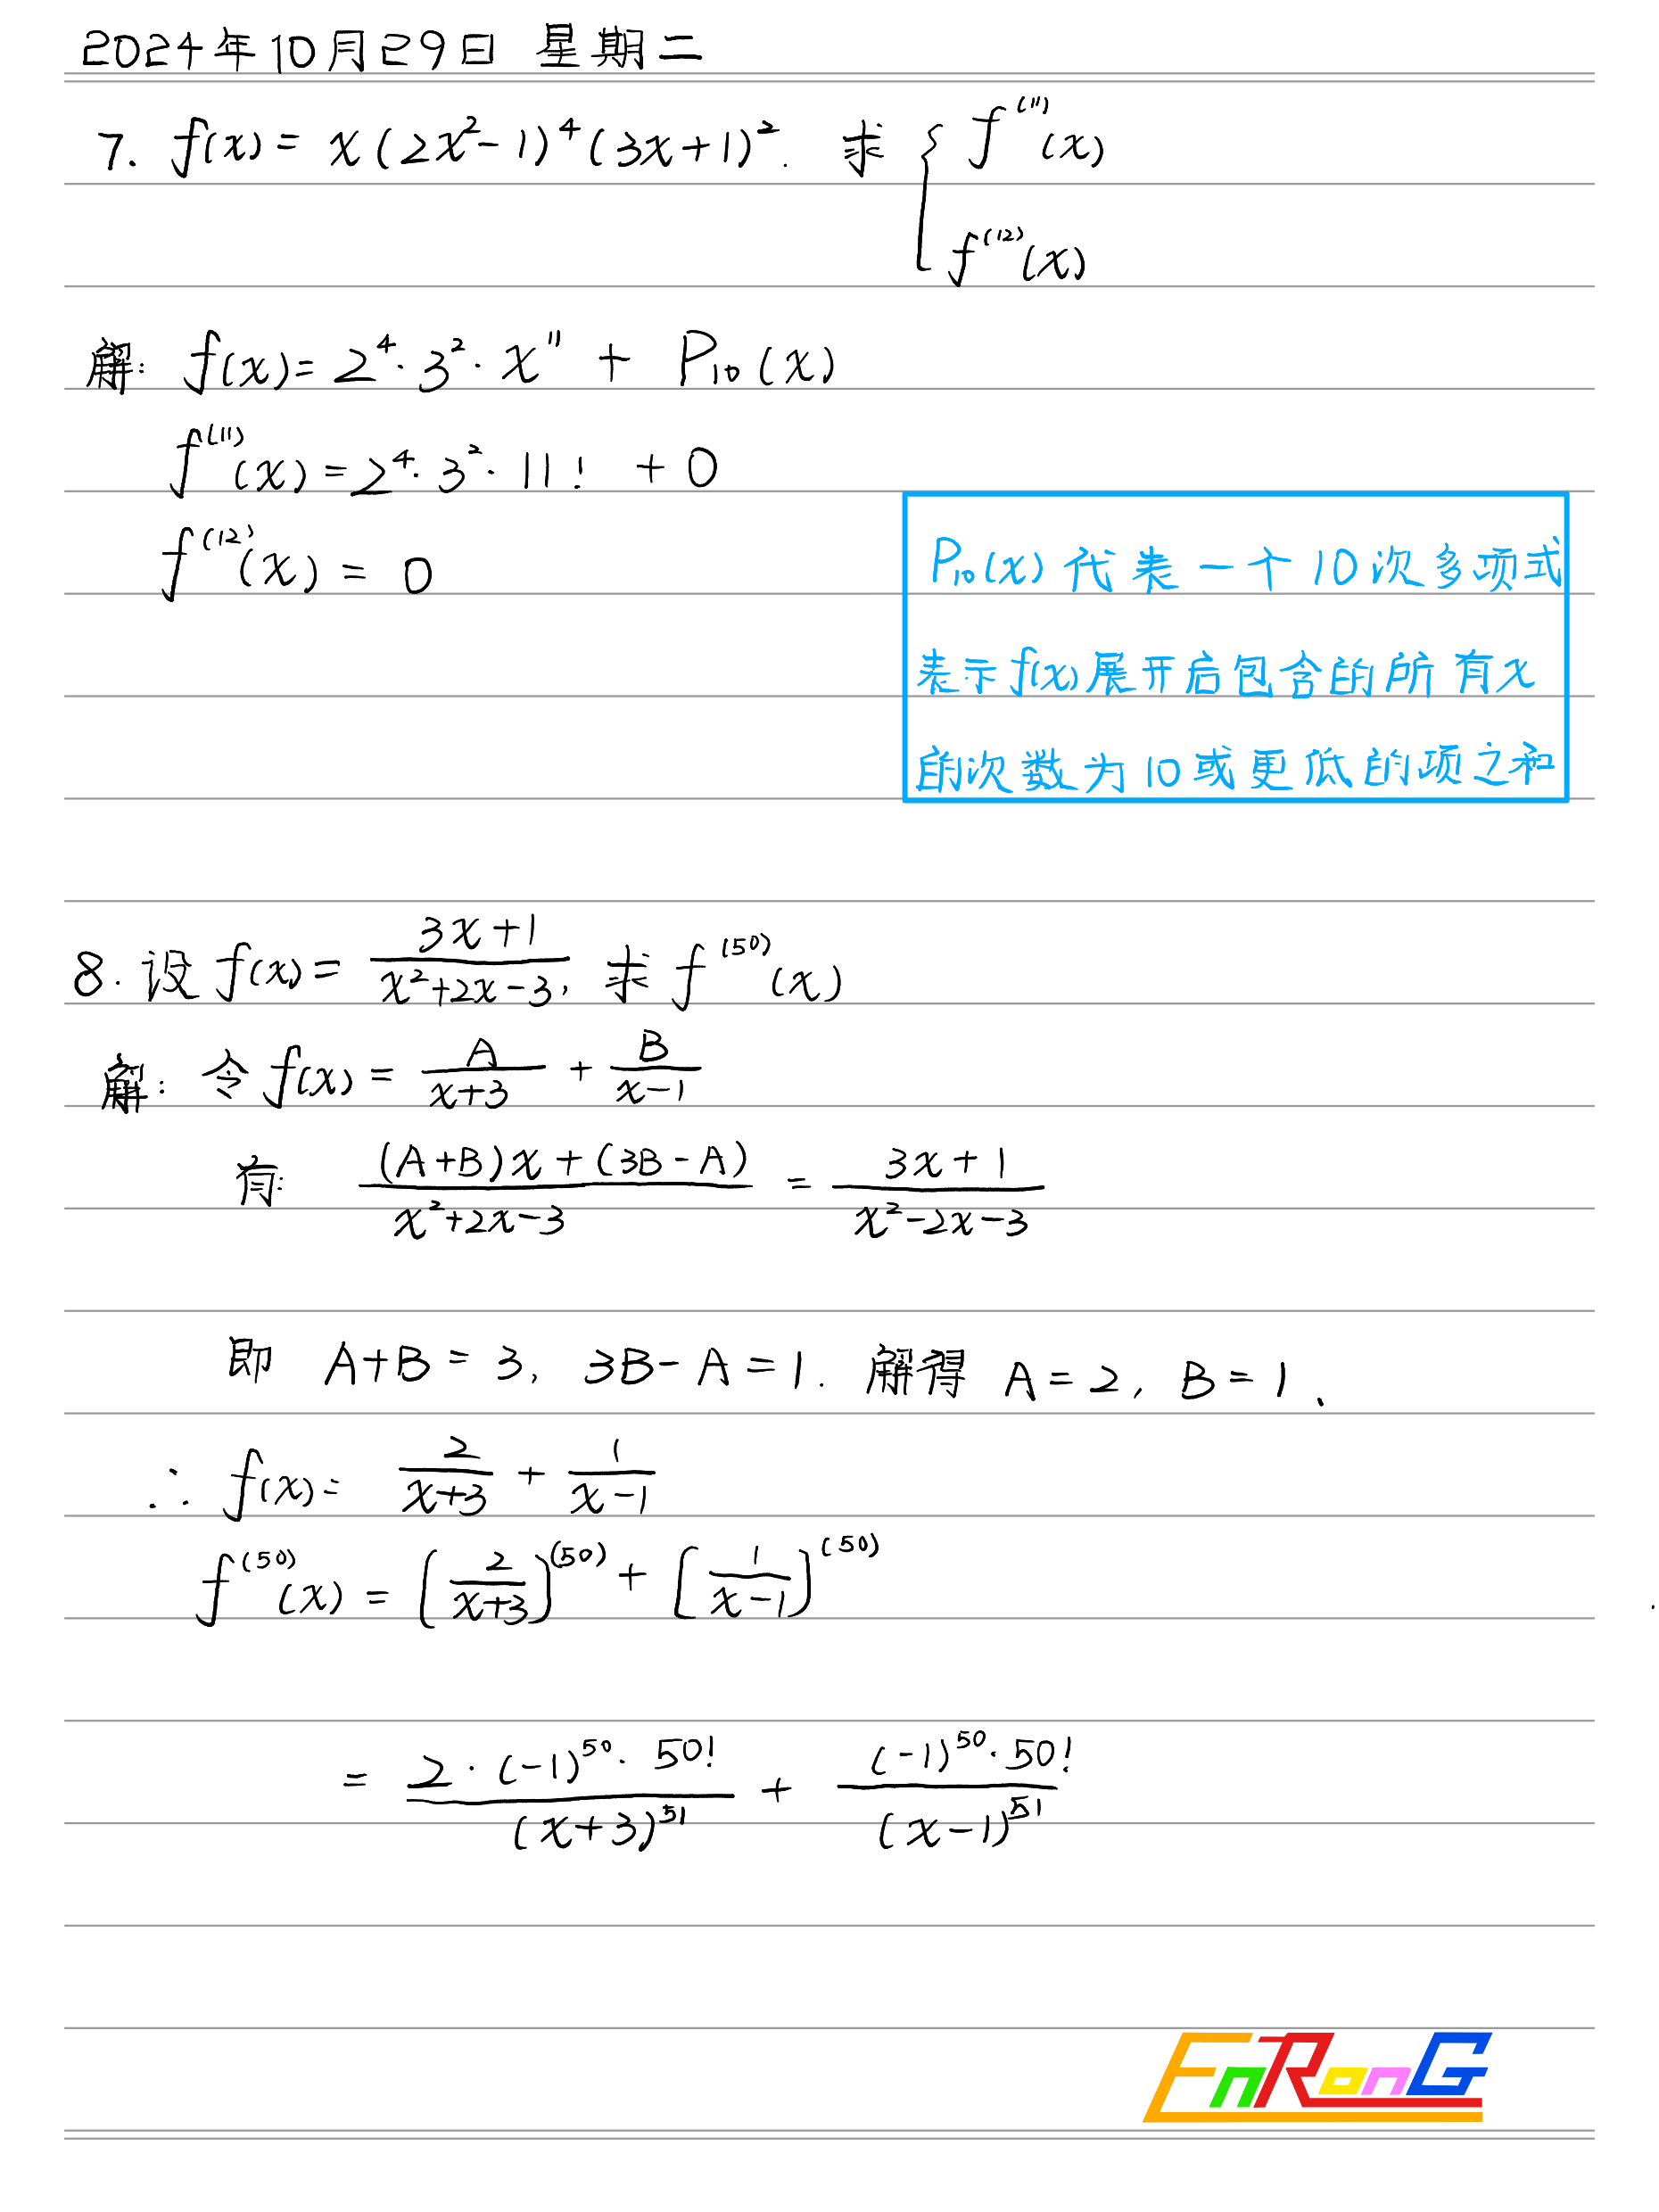 2024年10月29日 星期二
7. f(x) = x(2x²-1)⁴(3x+1)². 求 { f⁽¹¹⁾(x)
f⁽¹²⁾(x)
解: f(x) = 2⁴·3²·x¹¹ + P₁₀(x)
f⁽¹¹⁾(x) = 2⁴·3²·11! + 0
f⁽¹²⁾(x) = 0
P₁₀(x) 代表一个10次多项式
表示f(x)展开后包含的所有x
的次数为10或更低的项之和
8. 设 f(x) = (3x+1)/(x²+2x-3), 求 f⁽⁵⁰⁾(x)
解: 令 f(x) = A/(x+3) + B/(x-1)
有: ((A+B)x+(3B-A))/(x²+2x-3) = (3x+1)/(x²-2x-3)
即 A+B = 3, 3B-A = 1. 解得 A = 2, B = 1.
∴ f(x) = 2/(x+3) + 1/(x-1)
f⁽⁵⁰⁾(x) = [2/(x+3)]⁽⁵⁰⁾ + [1/(x-1)]⁽⁵⁰⁾
= (2·(-1)⁵⁰·50!)/(x+3)⁵¹ + ((-1)⁵⁰·50!)/(x-1)⁵¹
EnRonG